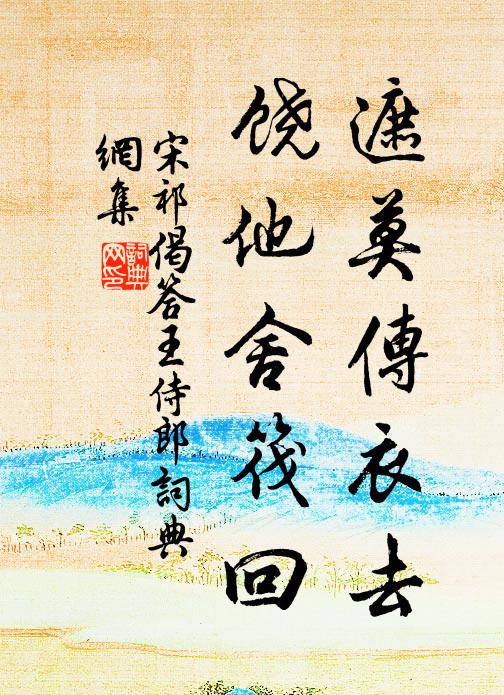 遮莫傳衣去
饶他舍筏回
宋祁偈答王侍郎詞典
網集
詞典网印